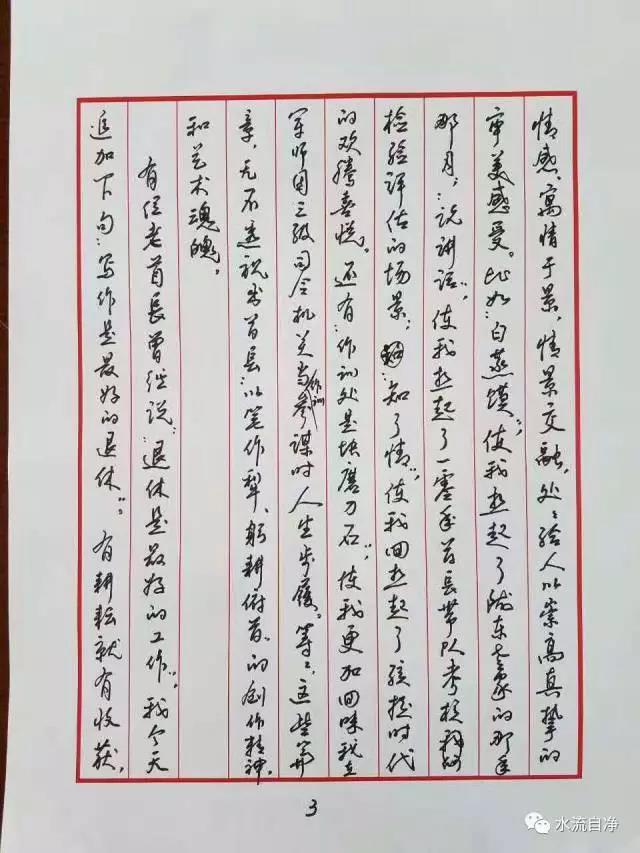 情感、寓情于景，情景交融，处处给人以崇高真挚的
审美感受。比如："白蒸馍"，使我想起了陇东老家的那年
那月；"说讲话"，使我想起了一零年首长带队考核
检验评估的场景；"知了情"，使我回想起了孩提时代
的欢腾喜悦。还有："作训处是块磨刀石"，使我更加回味我在
军师团三级司令机关当作训参谋时人生步履。等等，这些篇
章，无不透视出首长："以笔作犁、躬耕俯首"的创作精神
和艺术魂魄。
有位老首长曾经说："退休是最好的工作"，我今天
追加下句："写作是最好的退休"。有耕耘就有收获，
3
水流自净